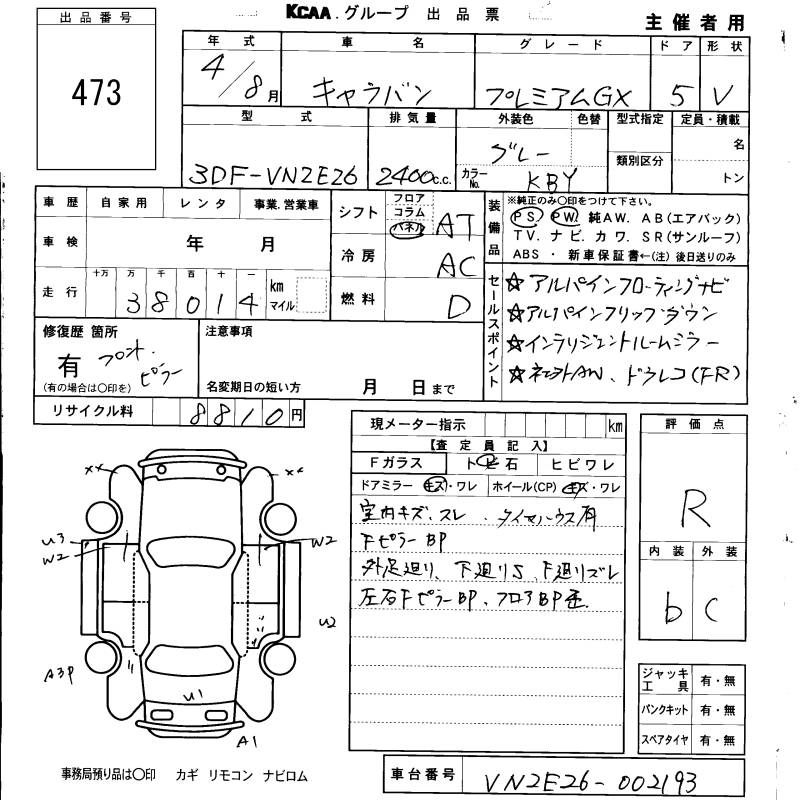 出品番号
KCAA.グループ 出品票
主催者用
473
年式 車名 グレード ドア 形状
4/8月 キャラバン プレミアムGX 5 V
型式 排気量 外装色 色替 型式指定 定員・積載
3DF-VN2E26 2400c.c. グレー 名
カラーNo. KBY 類別区分 トン
車歴 自家用 レンタ 事業.営業車
シフト フロア コラム パネル AT
車検 年 月
冷房 AC
走行 十万 万 千 百 十 一 km マイル
38014
燃料 D
装備品 ※純正のみ〇印をつけて下さい。
PS. PW. 純AW. AB(エアバック)
TV. ナビ. カワ. SR(サンルーフ)
ABS ・ 新車保証書←(注) 後日送りのみ
セールスポイント
☆アルパインフローティングナビ
☆アルパインフリップダウン
☆インテリジェントルームミラー
☆ ドラレコ(FR)
修復歴 箇所
有 フロント. ピラー
(有の場合は〇印を)
注意事項
名変期日の短い方 月 日まで
リサイクル料 8810円
現メーター指示 km
【査定員記入】
Fガラス トビ石 ヒビワレ
ドアミラー キズ・ワレ ホイール(CP) キズ・ワレ
室内キズ、スレ 、タイヤハウス有
Fピラー BP
下廻りS、F廻りズレ
左右FピラーBP、フロアBP歪
評価点
R
内装 外装
b C
××
××
U3
W2
W2
U2
A3P
U1
A1
ジャッキ工具 有・無
パンクキット 有・無
スペアタイヤ 有・無
事務局預り品は〇印 カギ リモコン ナビロム
車台番号 VN2E26-002193